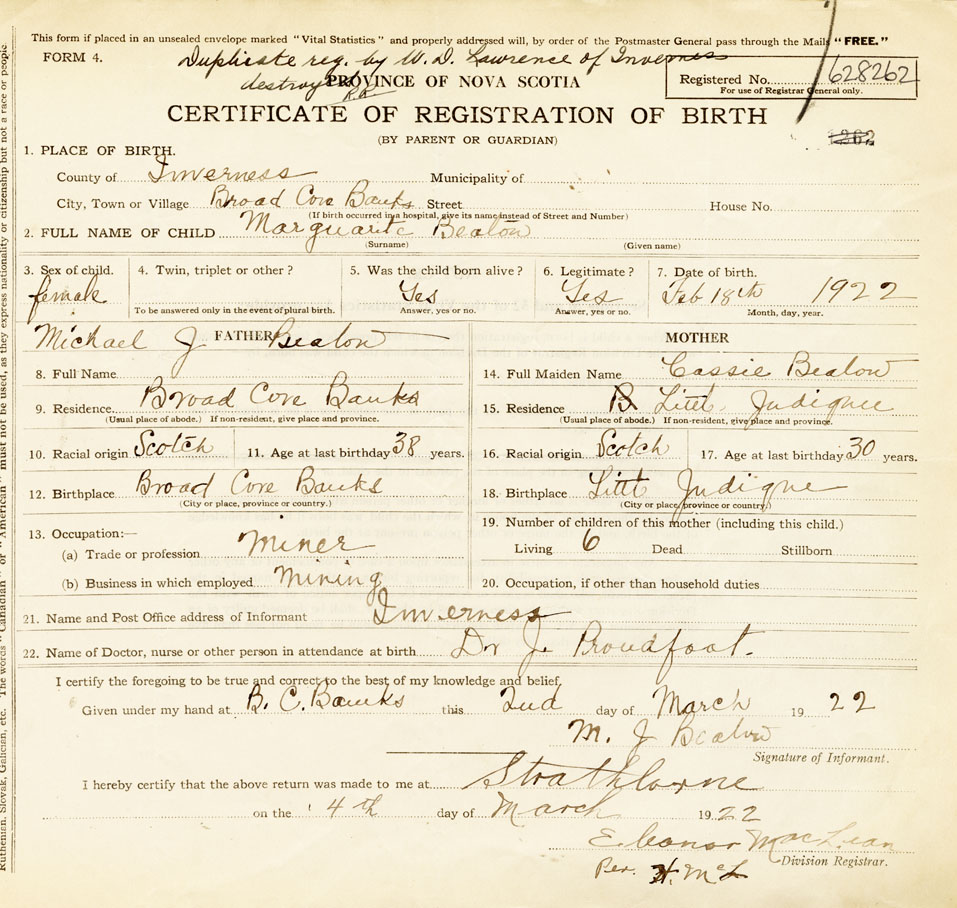 This form if placed in an unsealed envelope marked "Vital Statistics" and properly addressed will, by order of the Postmaster General pass through the Mails "FREE."
FORM 4.
Duplicate reg. by W. D. Lawrence of Inverness
destroyed
PROVINCE OF NOVA SCOTIA
Registered No. 628262
For use of Registrar General only.
CERTIFICATE OF REGISTRATION OF BIRTH
(BY PARENT OR GUARDIAN)
1. PLACE OF BIRTH.
County of Inverness Municipality of
City, Town or Village Broad Cove Banks Street House No.
(If birth occurred in a hospital, give its name instead of Street and Number)
2. FULL NAME OF CHILD Marguarite Beaton
(Surname) (Given name)
3. Sex of child. 4. Twin, triplet or other? 5. Was the child born alive? 6. Legitimate? 7. Date of birth.
female Yes Yes Feb 18th 1922
To be answered only in the event of plural birth. Answer, yes or no. Answer, yes or no. Month, day, year.
Michael J Beaton
FATHER MOTHER
8. Full Name 14. Full Maiden Name Cassie Beaton
9. Residence Broad Cove Banks 15. Residence B Little Judique
(Usual place of abode.) If non-resident, give place and province. (Usual place of abode.) If non-resident, give place and province.
10. Racial origin Scotch 11. Age at last birthday 38 years. 16. Racial origin Scotch 17. Age at last birthday 30 years.
12. Birthplace Broad Cove Banks 18. Birthplace Little Judique
(City or place, province or country.) (City or place, province or country.)
13. Occupation:— 19. Number of children of this mother (including this child.)
(a) Trade or profession Miner Living 6 Dead Stillborn
(b) Business in which employed Mining 20. Occupation, if other than household duties
21. Name and Post Office address of Informant Inverness
22. Name of Doctor, nurse or other person in attendance at birth Dr J. Proudfoot.
I certify the foregoing to be true and correct to the best of my knowledge and belief.
Given under my hand at B. C. Banks this 2nd day of March 1922
M. J Beaton
Signature of Informant.
I hereby certify that the above return was made to me at Strathlorne
on the 4th day of March 1922
Eleanor MacLean
Division Registrar.
Per. H. McL
Ruthenian, Slovak, Galician, etc. The words "Canadian" or "American" must not be used, as they express nationality or citizenship but not a race or people.